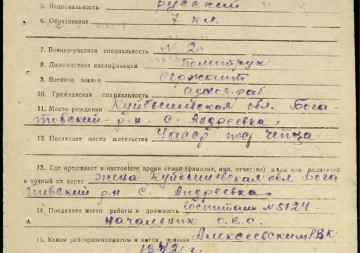 5. Национальность русский
6. Образование 7 кл.
7. Военно-учетная специальность № 2
8. Должностная квалификация политрук
9. Военное звание сержант
10. Гражданская специальность
11. Место рождения Куйбышевская обл. Бога-
товский р-н с. Андреевка
12. Последнее место жительства Часср
13. Где проживает в настоящее время семья (фамилия, имя, отчество) жены или родителей
и точный их адрес жена Куйбышевская обл. Бога
товский р-н с. Андреевка
14. Последнее место работы и должность госпиталь №3124
начальник О.В.С.
15. Каким райгорвоенкоматом и когда призван Алексеевским РВК
1942 г.